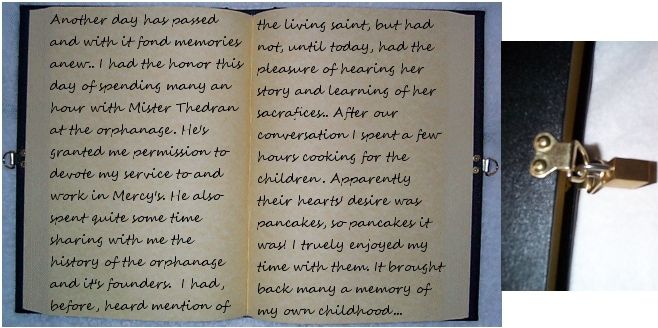 Another day has passed
and with it fond memories
anew.. I had the honor this
day of spending many an
hour with Mister Thedran
at the orphanage. He's
granted me permission to
devote my service to and
work in Mercy's. He also
spent quite some time
sharing with me the
history of the orphanage
and it's founders. I had,
before, heard mention of
the living saint, but had
not, until today, had the
pleasure of hearing her
story and learning of her
sacrafices.. After our
conversation I spent a few
hours cooking for the
children. Apparently
their hearts' desire was
pancakes, so pancakes it
was! I truely enjoyed my
time with them. It brought
back many a memory of
my own childhood...